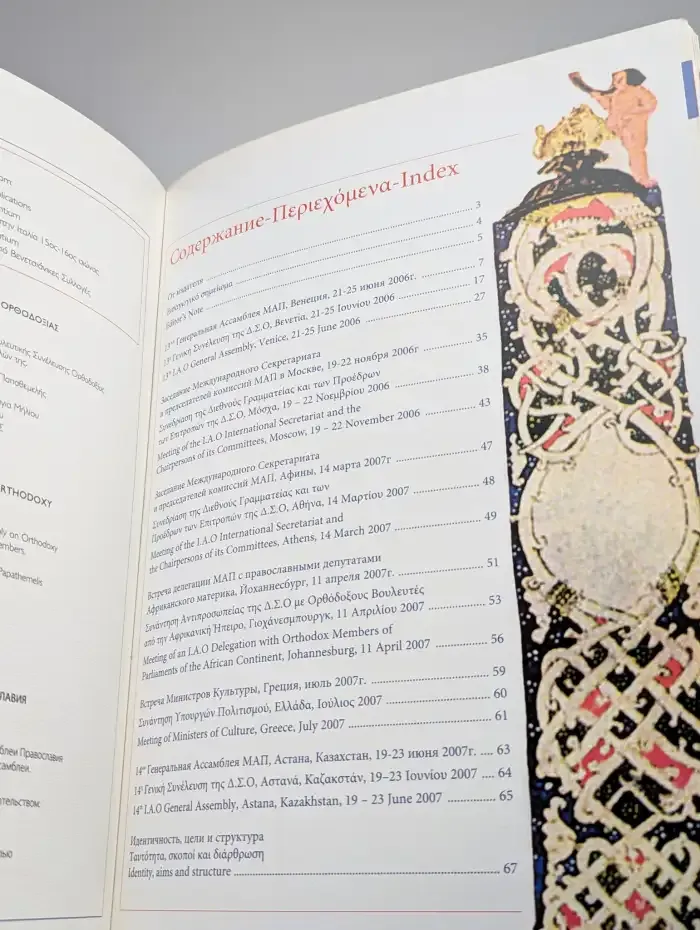 ΟΡΘΟΔΟΞΙΑΣ
Παπαθεμελής
ORTHODOXY
Papathemelis
Содержание-Περιεχόμενα-Index
От издателя 3
Εκδοτικό σημείωμα 4
Editor's Note 5
13ая Генеральная Ассамблея МАП, Венеция, 21-25 июня 2006г. 7
13η Γενική Συνέλευση της Δ.Σ.Ο, Βενετία, 21-25 Ιουνίου 2006 17
13th I.A.O General Assembly, Venice, 21-25 June 2006 27
Заседание Международного Секретариата
и председателей комиссий МАП в Москве, 19-22 ноября 2006г 35
Συνεδρίαση της Διεθνούς Γραμματείας και των Προέδρων
των Επιτροπών της Δ.Σ.Ο, Μόσχα, 19 – 22 Νοεμβρίου 2006 38
Meeting of the I.A.O International Secretariat and the
Chairpersons of its Committees, Moscow, 19 – 22 November 2006 43
Заседание Международного Секретариата
и председателей комиссий МАП, Афины, 14 марта 2007г 47
Συνεδρίαση της Διεθνούς Γραμματείας και των
Προέδρων των Επιτροπών της Δ.Σ.Ο, Αθήνα, 14 Μαρτίου 2007 48
Meeting of the I.A.O International Secretariat and
the Chairpersons of its Committees, Athens, 14 March 2007 49
Встреча делегации МАП с православными депутатами
Африканского материка, Йоханнесбург, 11 апреля 2007г. 51
Συνάντηση Αντιπροσωπείας της Δ.Σ.Ο με Ορθόδοξους Βουλευτές
από την Αφρικανική Ήπειρο, Γιοχάνεσμπουργκ, 11 Απριλίου 2007 53
Meeting of an I.A.O Delegation with Orthodox Members of
Parliaments of the African Continent, Johannesburg, 11 April 2007 56
Встреча Министров Культуры, Греция, июль 2007г. 59
Συνάντηση Υπουργών Πολιτισμού, Ελλάδα, Ιούλιος 2007 60
Meeting of Ministers of Culture, Greece, July 2007 61
14ая Генеральная Ассамблея МАП, Астана, Казахстан, 19-23 июня 2007г. 63
14η Γενική Συνέλευση της Δ.Σ.Ο, Αστανά, Καζακστάν, 19–23 Ιουνίου 2007 64
14th I.A.O General Assembly, Astana, Kazakhstan, 19 – 23 June 2007 65
Идентичность, цели и структура
Ταυτότητα, σκοποί και διάρθρωση
Identity, aims and structure 67